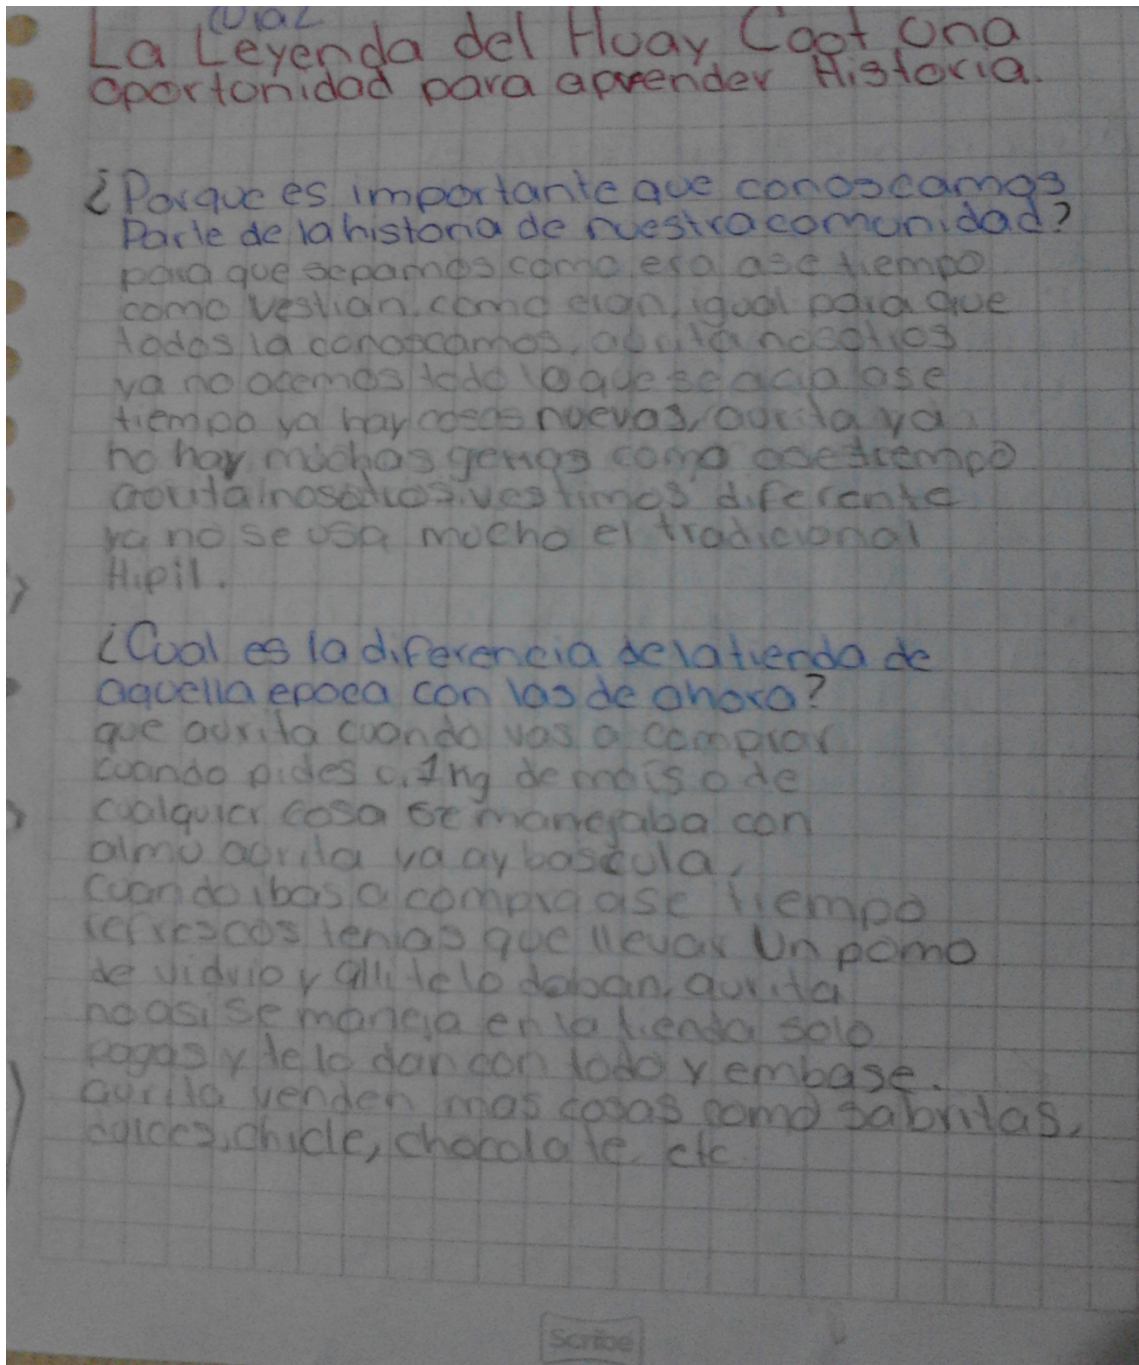 La Leyenda del Huay Coot Una
oportunidad para aprender Historia.
¿Porque es importante que conoscamos
Parte de la historia de nuestra comunidad?
para que sepamos como era ase tiempo
como vestian, como eran, igual para que
todos la conoscamos, aorita nosotros
ya no acemos todo lo que se acia ase
tiempo ya hay cosas nuevas, aorita ya
no hay muchas como ase tiempo
aorita nosotros vestimos diferente
ya no se usa mucho el tradicional
Hipil.
¿Cual es la diferencia de la tienda de
aquella epoca con las de ahora?
que aorita cuando vas a comprar
cuando pides de mais o de
cualquier cosa se manejaba con
almu aorita ya ay bascula,
cuando ibas a compra ase tiempo
refrescos tenias que llevar Un pomo
de vidrio y alli telo daban, aurita
no asi se maneja en la tienda solo
pagas y te lo dan con todo y embase.
aurita venden mas cosas como sabritas,
dulces, chicle, chocolate, etc.
Scribe